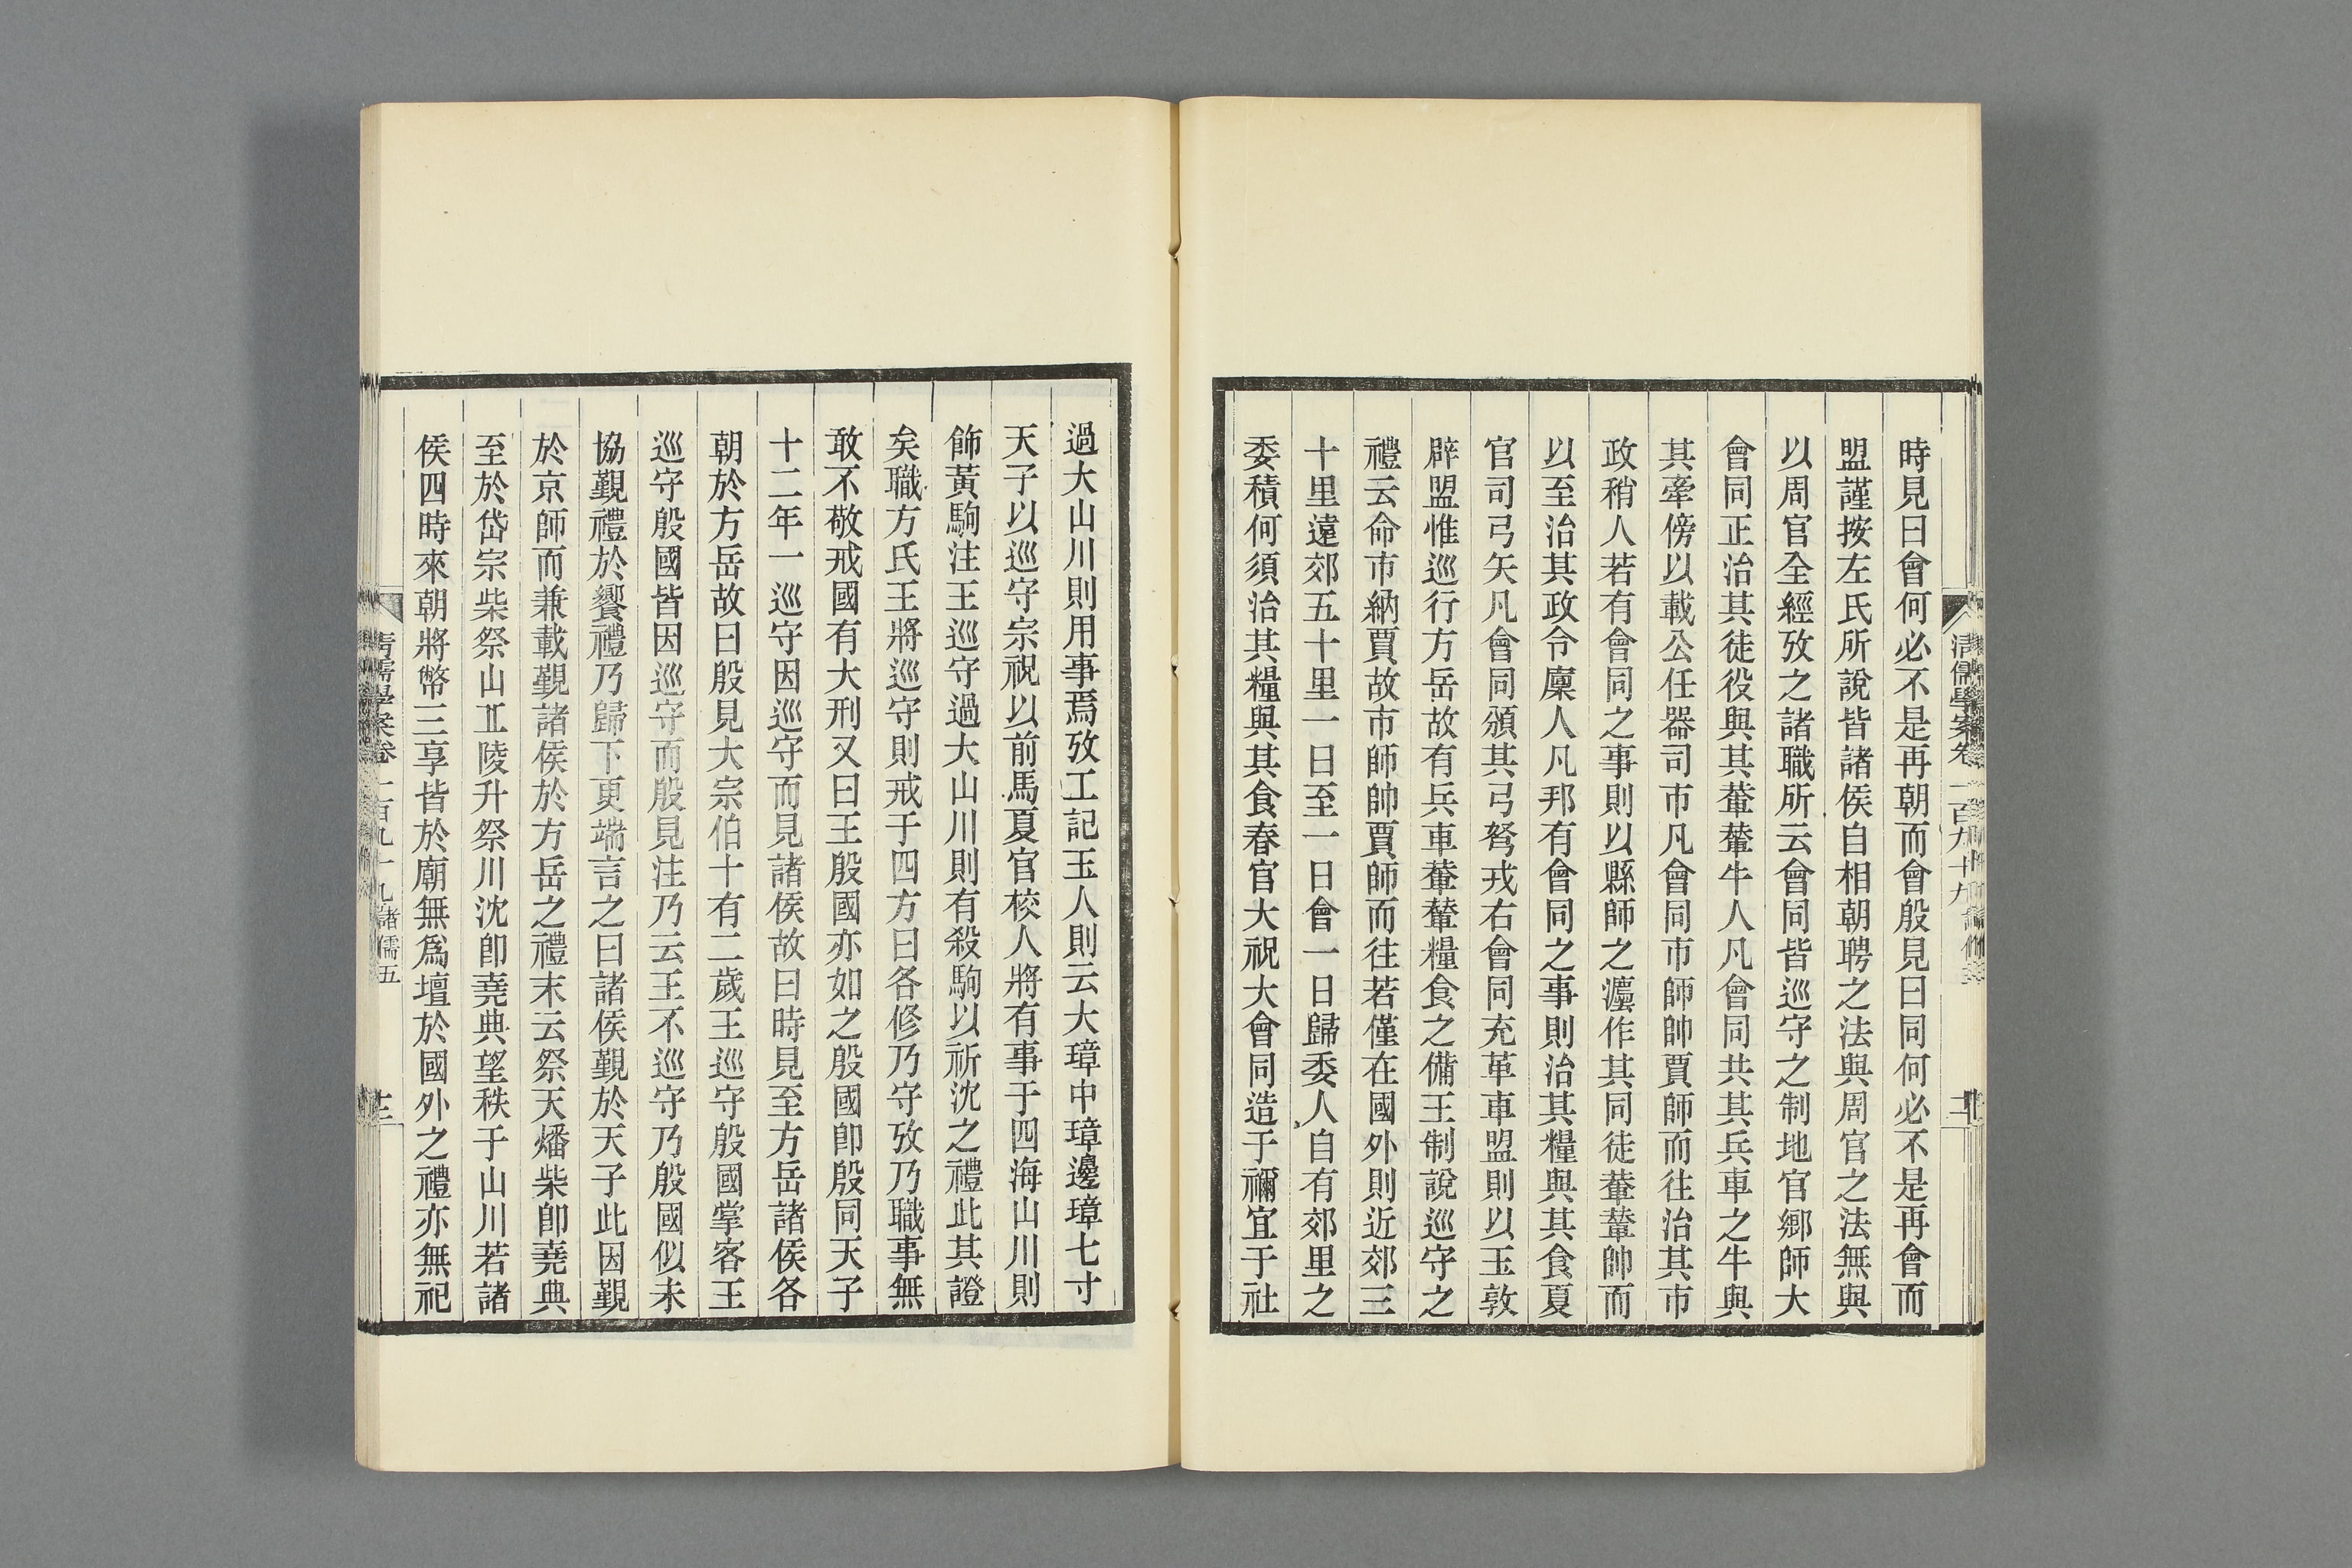 時見曰會何必不是再朝而會殷見曰同何必不是再會而
盟謹按左氏所說皆諸侯自相朝聘之法與周官之法無與
以周官全經攷之諸職所云會同皆巡守之制地官鄉師大
會同正治其徒役與其輂輦牛人凡會同共其兵車之牛與
其牽傍以載公任器司市凡會同市師帥賈師而往治其市
政稍人若有會同之事則以縣師之灋作其同徒輂輦帥而
以至治其政令廩人凡邦有會同之事則治其糧與其食夏
官司弓矢凡會同頒其弓弩戎右會同充革車盟則以玉敦
辟盟惟巡行方岳故有兵車輂輦糧食之備王制說巡守之
禮云命市納賈故市師帥賈師而往若僅在國外則近郊三
十里遠郊五十里一日至一日會一日歸委人自有郊里之
委積何須治其糧與其食春官大祝大會同造于禰宜于社
清儒學案卷一百九十九
過大山川則用事焉攷工記玉人則云大璋中璋邊璋七寸
天子以巡守宗祝以前馬夏官校人將有事于四海山川則
飾黃駒注王巡守過大山川則有殺駒以祈沈之禮此其證
矣職方氏王將巡守則戒于四方曰各修乃守攷乃職事無
敢不敬戒國有大刑又曰王殷國亦如之殷國卽殷同天子
十二年一巡守因巡守而見諸侯故曰時見至方岳諸侯各
朝於方岳故曰殷見大宗伯十有二歲王巡守殷國掌客王
巡守殷國皆因巡守而殷見注乃云王不巡守乃殷國似未
協覲禮於饗禮乃歸下更端言之曰諸侯覲於天子此因覲
於京師而兼載覲諸侯於方岳之禮末云祭天燔柴卽堯典
至於岱宗柴祭山𠀉陵升祭川沈卽堯典望秩于山川若諸
侯四時來朝將幣三享皆於廟無爲壇於國外之禮亦無祀
清儒學案卷一百九十九諸儒五
十三